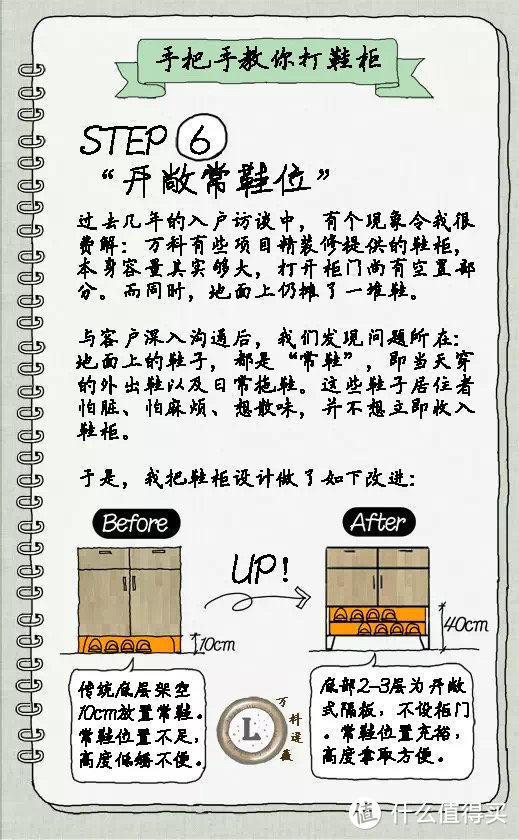 手把手教你打鞋柜
STEP 6
“开敞常鞋位”
过去几年的入户访谈中，有个现象令我很
费解：万科有些项目精装修提供的鞋柜，
本身容量其实够大，打开柜门尚有空置部
分。而同时，地面上仍摊了一堆鞋。
与客户深入沟通后，我们发现问题所在：
地面上的鞋子，都是“常鞋”，即当天穿
的外出鞋以及日常拖鞋。这些鞋子居住者
怕脏、怕麻烦、想散味，并不想立即收入
鞋柜。
于是，我把鞋柜设计做了如下改进：
Before
After
UP!
10cm
40cm
传统底层架空
10cm放置常鞋。
常鞋位置不足，
高度低矮不便。
底部2-3层为开敞
式隔板，不设柜门
。常鞋位置充裕，
高度拿取方便。
L
万科逯薇
值 什么值得买